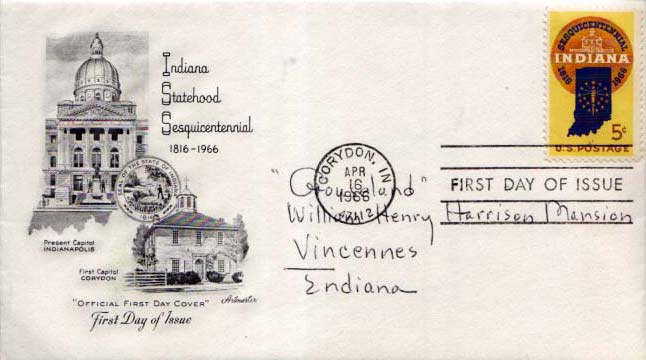 Indiana
Statehood
Sesquicentennial
1816-1966
SEAL OF THE STATE OF INDIANA
1816
Present Capitol
INDIANAPOLIS
First Capitol
CORYDON
"OFFICIAL FIRST DAY COVER"
Artmaster
First Day of Issue
SESQUICENTENNIAL
INDIANA
1816 1966
5¢
U.S. POSTAGE
CORYDON, IN
APR
16
1966
FIRST DAY OF ISSUE
"Grouseland"
William Henry Harrison Mansion
Vincennes
Indiana